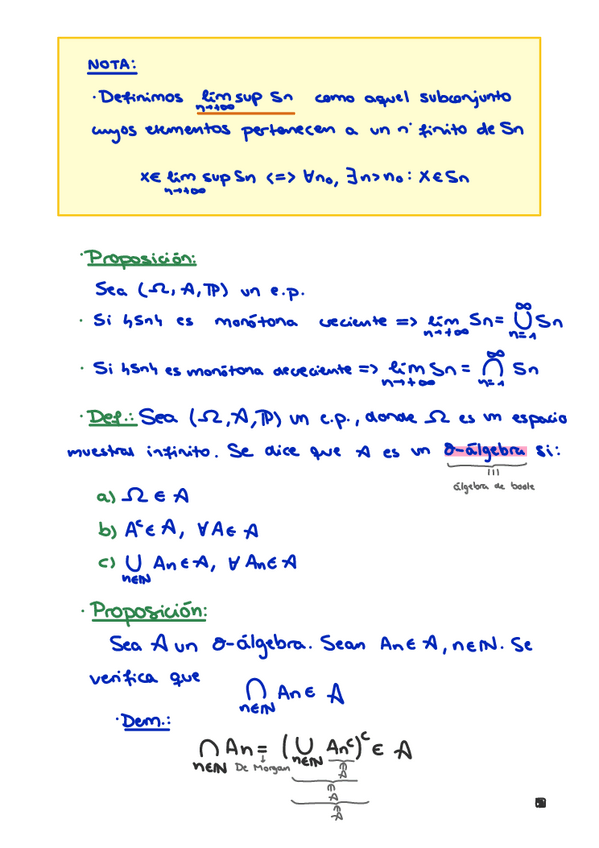 NOTA:
· Definimos lim sup Sn como aquel subconjunto
n→+∞
cuyos elementos pertenecen a un nº finito de Sn
x∈ lim sup Sn <=> ∀n₀, ∃n>n₀: x∈Sn
n→+∞
· Proposición:
Sea (Ω, A, P) un e.p.
· Si {Sn} es monótona creciente => lim Sn = ⋃ Sn
n→+∞ n=1 ∞
· Si {Sn} es monótona decreciente => lim Sn = ⋂ Sn
n→+∞ n=1 ∞
· Def.: Sea (Ω, A, P) un e.p., donde Ω es un espacio
muestral infinito. Se dice que A es un σ-álgebra si:
álgebra de boole
a) Ω ∈ A
b) Aᶜ ∈ A, ∀ A ∈ A
c) ⋃ An ∈ A, ∀ An ∈ A
n∈ℕ
· Proposición:
Sea A un σ-álgebra. Sean An ∈ A, n∈ℕ. Se
verifica que
⋂ An ∈ A
n∈ℕ
· Dem.:
⋂ An = (⋃ Anᶜ)ᶜ ∈ A
n∈ℕ De Morgan n∈ℕ
∈A
∈A
∈A